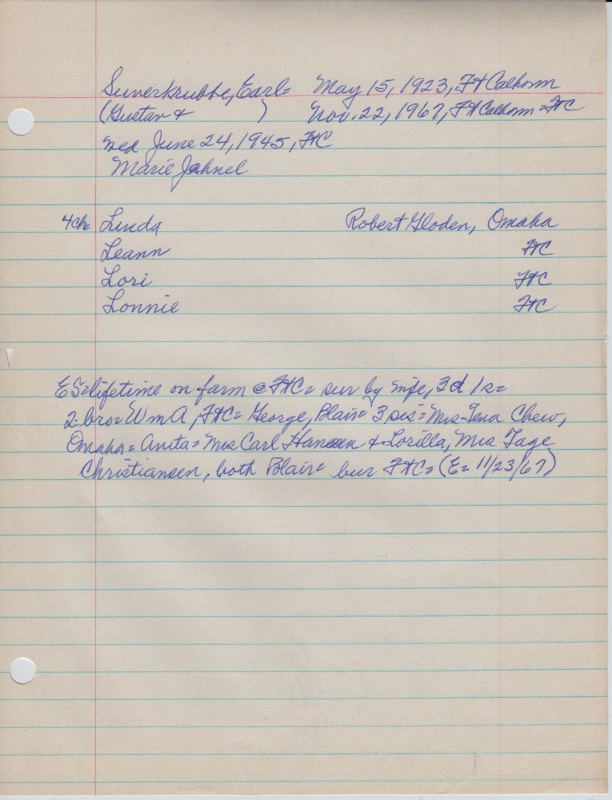 Suverkrubbe, Earl= May 15, 1923, Ft Calhoun
(Gustav & ) Nov. 22, 1967, Ft Calhoun=FtC
wed June 24, 1945, FtC
Marie Jahnel
4ch= Linda Robert Gloden, Omaha
Leann FtC
Lori FtC
Lonnie FtC
ES=lifetime on farm @ FtC= sur by wife, 3d 1s=
2 bro=Wm A, FtC= George, Blair= 3 sis= Mrs Tena Chew,
Omaha= Anita= Mrs Carl Hansen & Lorilla, Mrs Tage
Christiansen, both Blair= bur FtC= (E= 11/23/67)